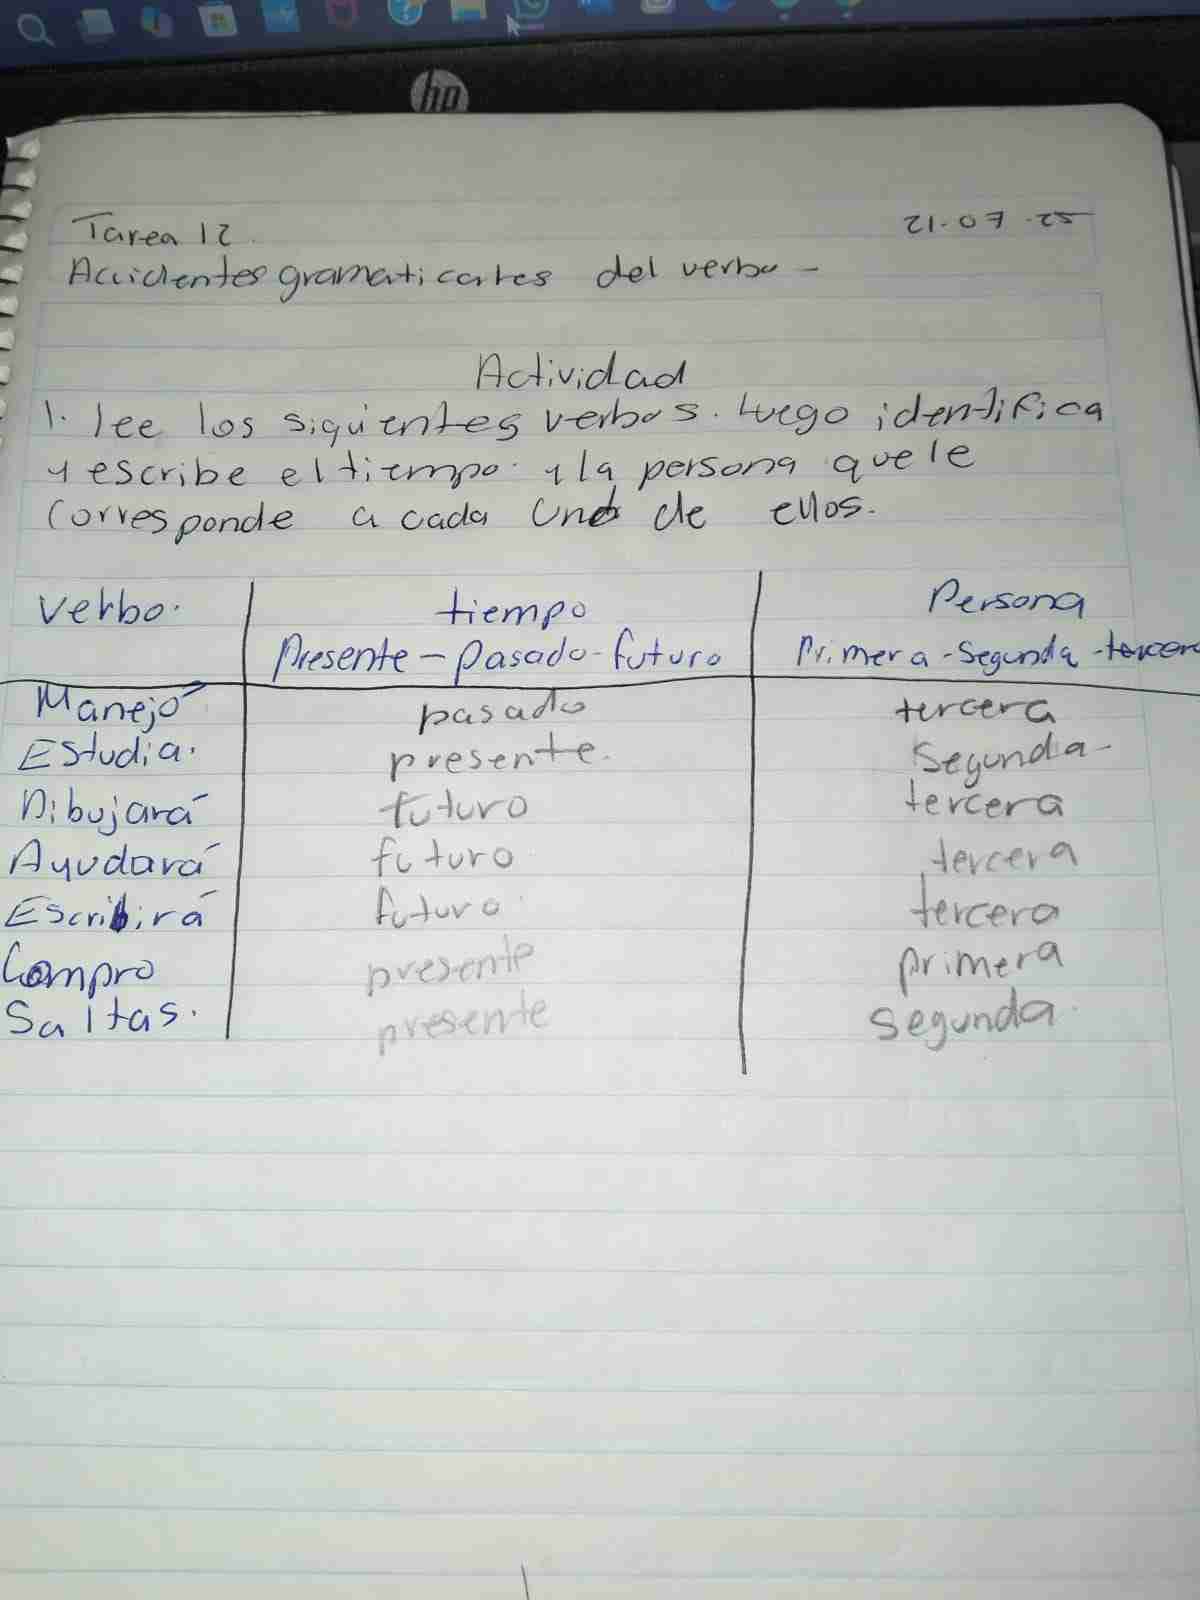 hp
Tarea 12.
21-07-25
Accidentes gramaticales del verbo -
Actividad
1. lee los siguientes verbos. Luego identifica
y escribe el tiempo y la persona que le
corresponde a cada uno de ellos.
Verbo. tiempo Persona
Presente - pasado - futuro Primera - Segunda - tercera
Manejó pasado tercera
Estudia. presente. Segunda -
Dibujará futuro tercera
Ayudará futuro tercera
Escribirá futuro. tercera
Compro presente primera
Saltas. presente segunda.